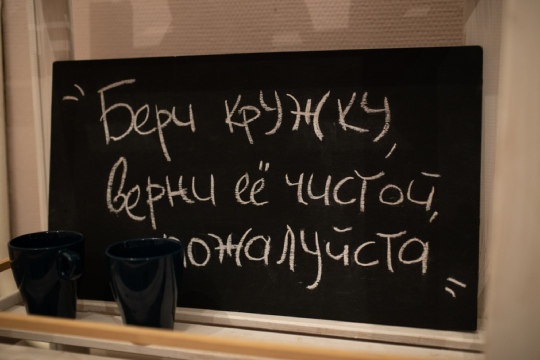 "Бери кружку,
верни её чистой,
пожалуйста"